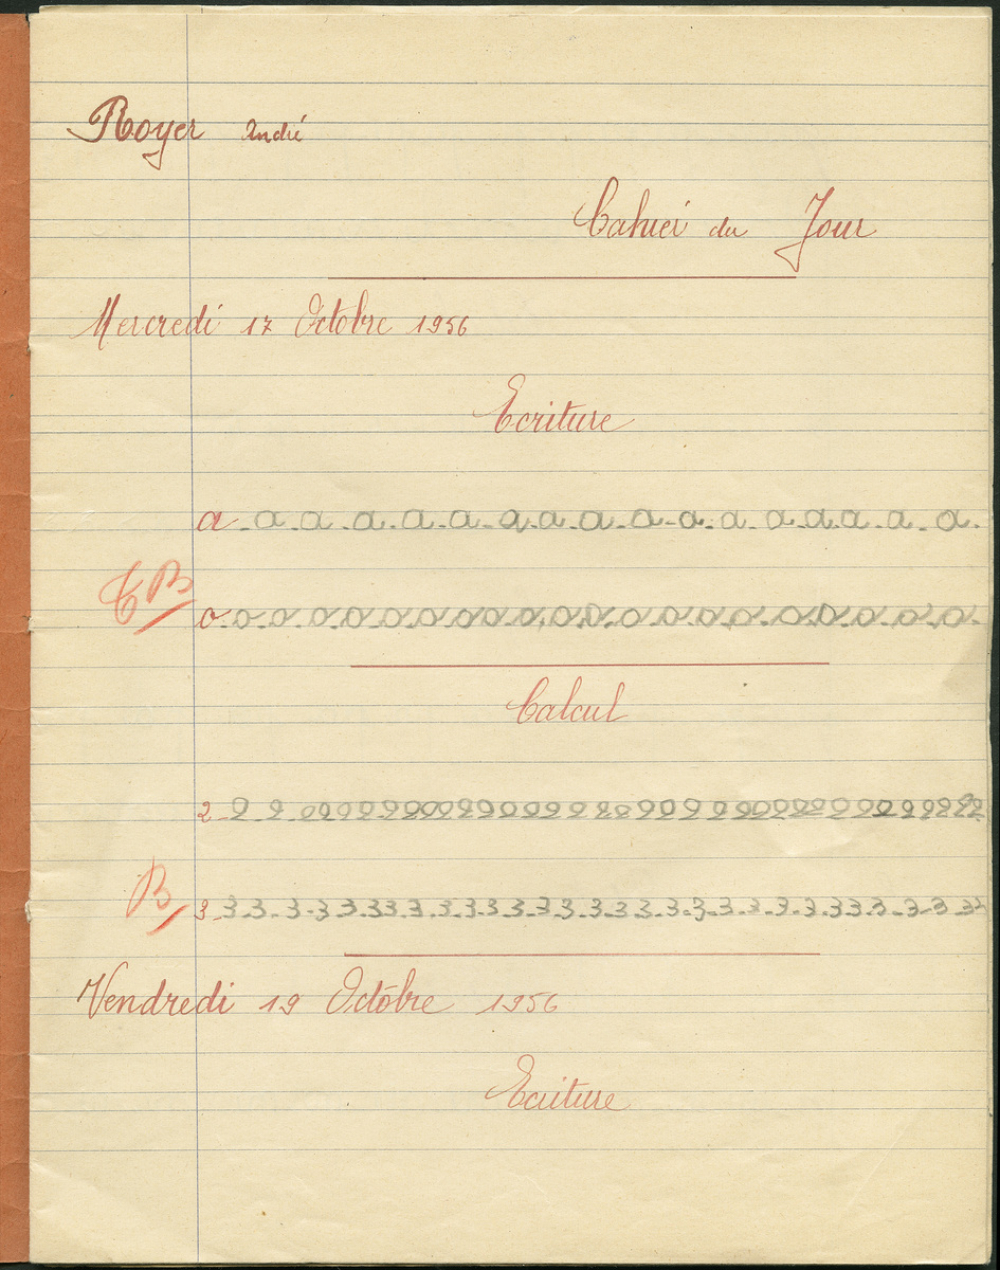 Royer André
Cahier du Jour
Mercredi 17 Octobre 1956
Ecriture
a a a a a a a a a a a a a a a a a
TB
o o o o o o o o o o o o o o o o o o o o o
Calcul
2 2 2 2 2 2 2 2 2 2 2 2 2 2 2 2 2 2 2 2 2 2 2 2 2 2 2 2 2 2 2 2 2 2 2 2
B
3 3 3 3 3 3 3 3 3 3 3 3 3 3 3 3 3 3 3 3 3 3 3 3 3 3 3 3 3 3 3
Vendredi 19 Octobre 1956
Ecriture